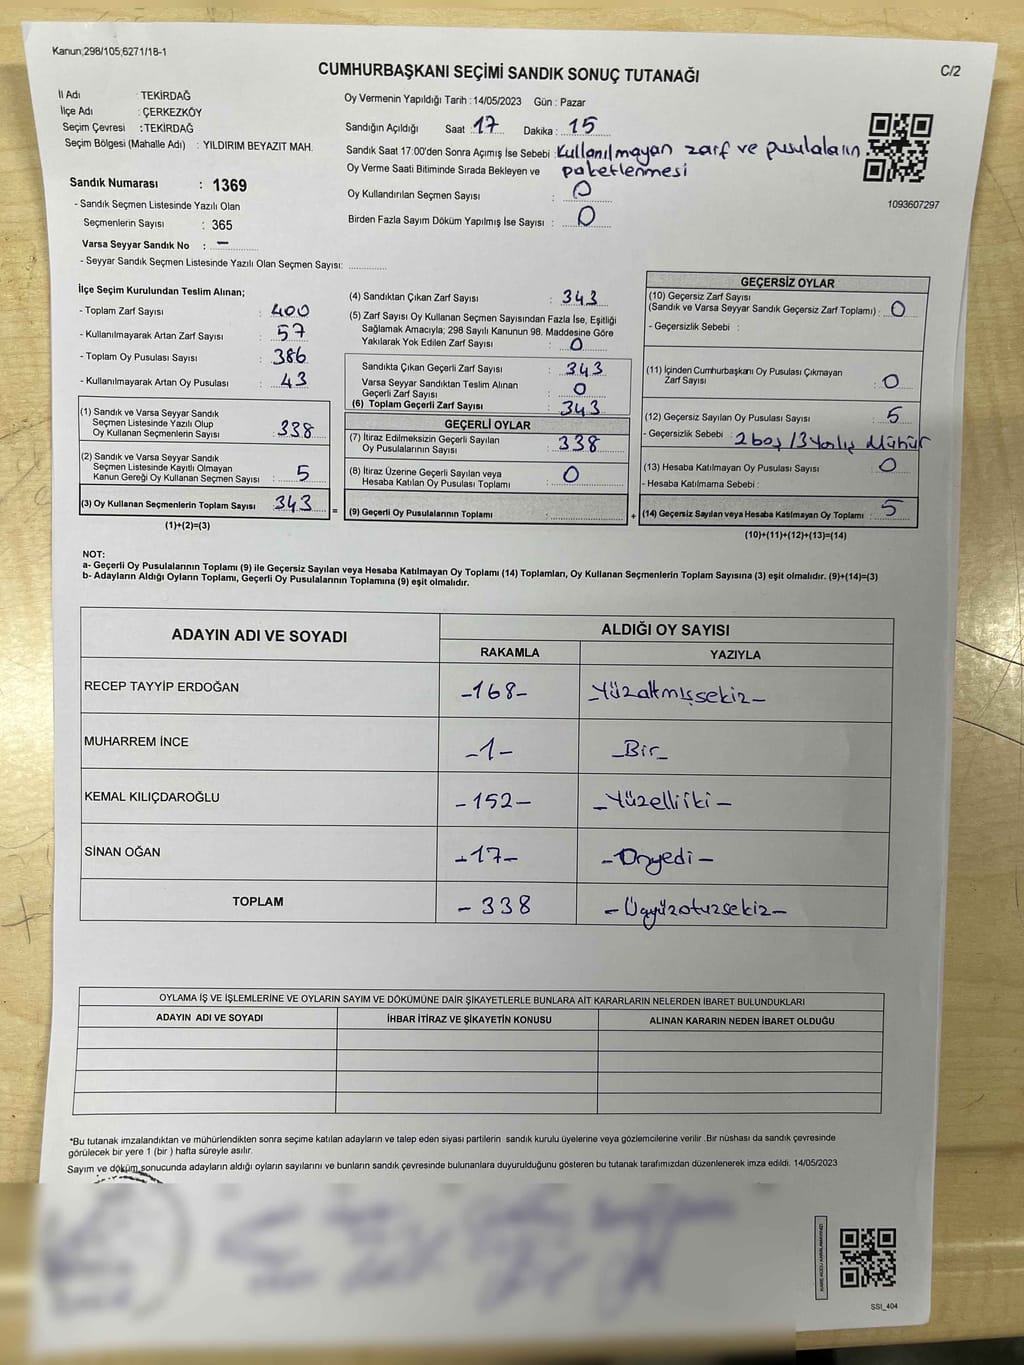 Kanun;298/105,6271/18-1
CUMHURBAŞKANI SEÇİMİ SANDIK SONUÇ TUTANAĞI
C/2
İl Adı : TEKİRDAĞ
İlçe Adı : ÇERKEZKÖY
Seçim Çevresi : TEKİRDAĞ
Seçim Bölgesi (Mahalle Adı) : YILDIRIM BEYAZIT MAH.
Sandık Numarası : 1369
- Sandık Seçmen Listesinde Yazılı Olan
Seçmenlerin Sayısı : 365
Varsa Seyyar Sandık No : —
- Seyyar Sandık Seçmen Listesinde Yazılı Olan Seçmen Sayısı: ............
Oy Vermenin Yapıldığı Tarih : 14/05/2023 Gün : Pazar
Sandığın Açıldığı Saat 17 Dakika : 15
Sandık Saat 17:00'den Sonra Açımış İse Sebebi : Kullanılmayan zarf ve pusulaların
Oy Verme Saati Bitiminde Sırada Bekleyen ve paketlenmesi
Oy Kullandırılan Seçmen Sayısı : 0
Birden Fazla Sayım Döküm Yapılmış İse Sayısı : 0
1093607297
İlçe Seçim Kurulundan Teslim Alınan;
- Toplam Zarf Sayısı : 400
- Kullanılmayarak Artan Zarf Sayısı : 57
- Toplam Oy Pusulası Sayısı : 386
- Kullanılmayarak Artan Oy Pusulası : 43
(1) Sandık ve Varsa Seyyar Sandık
Seçmen Listesinde Yazılı Olup
Oy Kullanan Seçmenlerin Sayısı : 338
(2) Sandık ve Varsa Seyyar Sandık
Seçmen Listesinde Kayıtlı Olmayan
Kanun Gereği Oy Kullanan Seçmen Sayısı : 5
(3) Oy Kullanan Seçmenlerin Toplam Sayısı 343 =
(1)+(2)=(3)
(4) Sandıktan Çıkan Zarf Sayısı : 343
(5) Zarf Sayısı Oy Kullanan Seçmen Sayısından Fazla İse, Eşitliği
Sağlamak Amacıyla; 298 Sayılı Kanunun 98. Maddesine Göre
Yakılarak Yok Edilen Zarf Sayısı : 0
Sandıkta Çıkan Geçerli Zarf Sayısı : 343
Varsa Seyyar Sandıktan Teslim Alınan
Geçerli Zarf Sayısı : 0
(6) Toplam Geçerli Zarf Sayısı : 343
GEÇERLİ OYLAR
(7) İtiraz Edilmeksizin Geçerli Sayılan
Oy Pusulalarının Sayısı : 338
(8) İtiraz Üzerine Geçerli Sayılan veya
Hesaba Katılan Oy Pusulası Toplamı : 0
(9) Geçerli Oy Pusulalarının Toplamı : ............ +
GEÇERSİZ OYLAR
(10) Geçersiz Zarf Sayısı
(Sandık ve Varsa Seyyar Sandık Geçersiz Zarf Toplamı) : 0
- Geçersizlik Sebebi :
(11) İçinden Cumhurbaşkanı Oy Pusulası Çıkmayan
Zarf Sayısı : 0
(12) Geçersiz Sayılan Oy Pusulası Sayısı : 5
- Geçersizlik Sebebi : 2 boş / 3 Yanlış Mühür
(13) Hesaba Katılmayan Oy Pusulası Sayısı : 0
- Hesaba Katılmama Sebebi :
(14) Geçersiz Sayılan veya Hesaba Katılmayan Oy Toplamı : 5
(10)+(11)+(12)+(13)=(14)
NOT:
a- Geçerli Oy Pusulalarının Toplamı (9) ile Geçersiz Sayılan veya Hesaba Katılmayan Oy Toplamı (14) Toplamları, Oy Kullanan Seçmenlerin Toplam Sayısına (3) eşit olmalıdır. (9)+(14)=(3)
b- Adayların Aldığı Oyların Toplamı, Geçerli Oy Pusulalarının Toplamına (9) eşit olmalıdır.
ADAYIN ADI VE SOYADI
ALDIĞI OY SAYISI
RAKAMLA YAZIYLA
RECEP TAYYİP ERDOĞAN -168- -Yüzaltmışsekiz-
MUHARREM İNCE -1- -Bir-
KEMAL KILIÇDAROĞLU -152- -Yüzelliiki-
SİNAN OĞAN -17- -Onyedi-
TOPLAM -338 -Üçyüzotuzsekiz-
OYLAMA İŞ VE İŞLEMLERİNE VE OYLARIN SAYIM VE DÖKÜMÜNE DAİR ŞİKAYETLERLE BUNLARA AİT KARARLARIN NELERDEN İBARET BULUNDUKLARI
ADAYIN ADI VE SOYADI İHBAR İTİRAZ VE ŞİKAYETİN KONUSU ALINAN KARARIN NEDEN İBARET OLDUĞU
*Bu tutanak imzalandıktan ve mühürlendikten sonra seçime katılan adayların ve talep eden siyasi partilerin sandık kurulu üyelerine veya gözlemcilerine verilir .Bir nüshası da sandık çevresinde
görülecek bir yere 1 (bir ) hafta süreyle asılır.
Sayım ve döküm sonucunda adayların aldığı oyların sayılarını ve bunların sandık çevresinde bulunanlara duyurulduğunu gösteren bu tutanak tarafımızdan düzenlenerek imza edildi. 14/05/2023
SSI_404